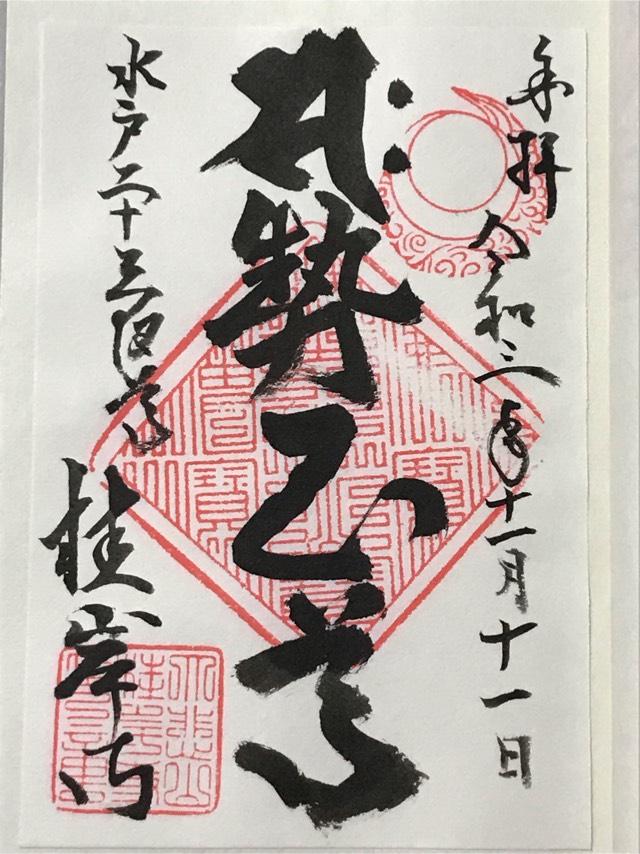 奉拝
令和三年十一月十一日
सः勢至尊
水戸二十三夜尊
桂岸寺